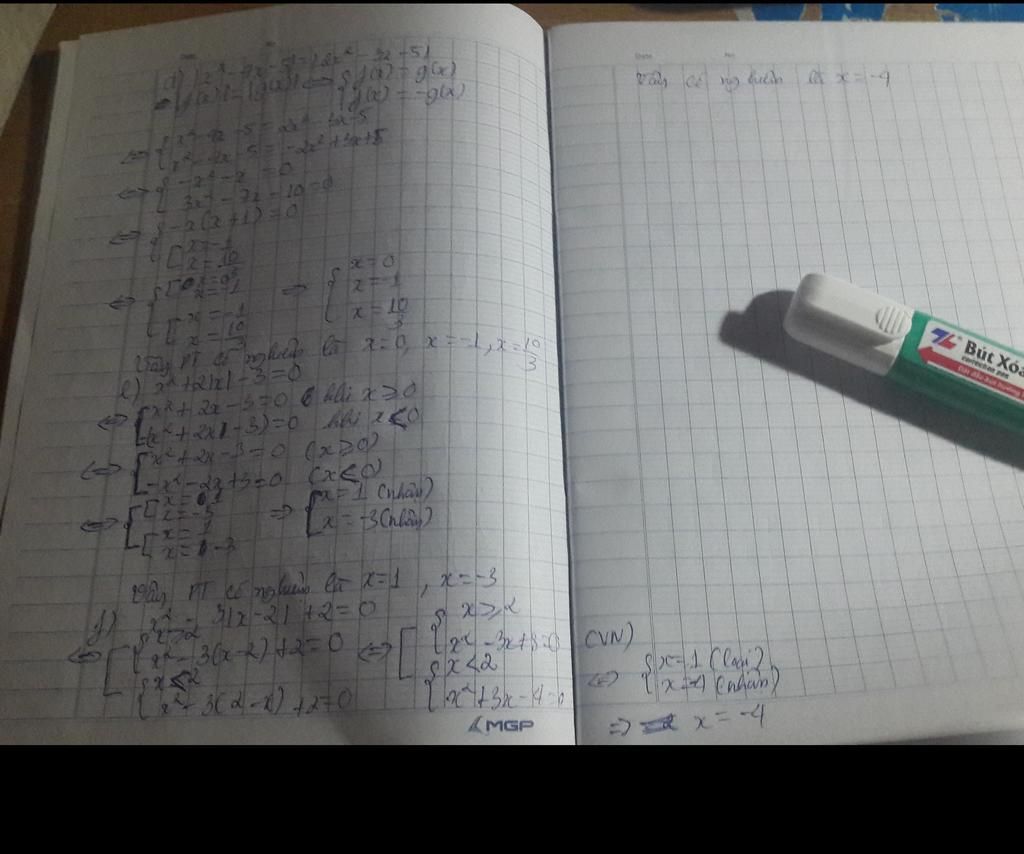 d) |x² - 4x - 5| = |2x² - 3x - 5|
|f(x)| = |g(x)| ⇔ { f(x) = g(x)
{ f(x) = -g(x)
⇔ { x² - 4x - 5 = 2x² - 3x - 5
{ x² - 4x - 5 = -2x² + 3x + 5
⇔ { -x² - x = 0
{ 3x² - 7x - 10 = 0
⇔ { -x(x + 1) = 0
{ [ x = -1
[ x = 10/3
⇔ { [ x = 0
[ x = -1
[ x = -1
[ x = 10/3
⇒ { x = 0
x = -1
x = 10/3
Vậy PT có nghiệm là x = 0, x = -1, x = 10/3
e) x² + 2|x| - 3 = 0
⇔ [ x² + 2x - 3 = 0 khi x ≥ 0
[ -(x² + 2x - 3) = 0 khi x < 0
⇔ [ x² + 2x - 3 = 0 (x ≥ 0)
[ -x² - 2x + 3 = 0 (x < 0)
⇔ [ [ x = 1
[ x = -3
[ x = 1
[ x = -3
⇒ [ x = 1 (nhận)
[ x = -3 (nhận)
Vậy PT có nghiệm là x = 1, x = -3
f) x² - 3|x - 2| + 2 = 0
⇔ [ { x ≥ 2
{ x² - 3(x - 2) + 2 = 0
{ x < 2
{ x² - 3(2 - x) + 2 = 0
⇔ [ { x ≥ 2
{ x² - 3x + 8 = 0 (VN)
{ x < 2
{ x² + 3x - 4 = 0
⇔ { x = 1 (loại)
{ x = -4 (nhận)
⇒ x = -4
MGP
Vậy có nghiệm là x = -4
Bút Xóa
correction pen